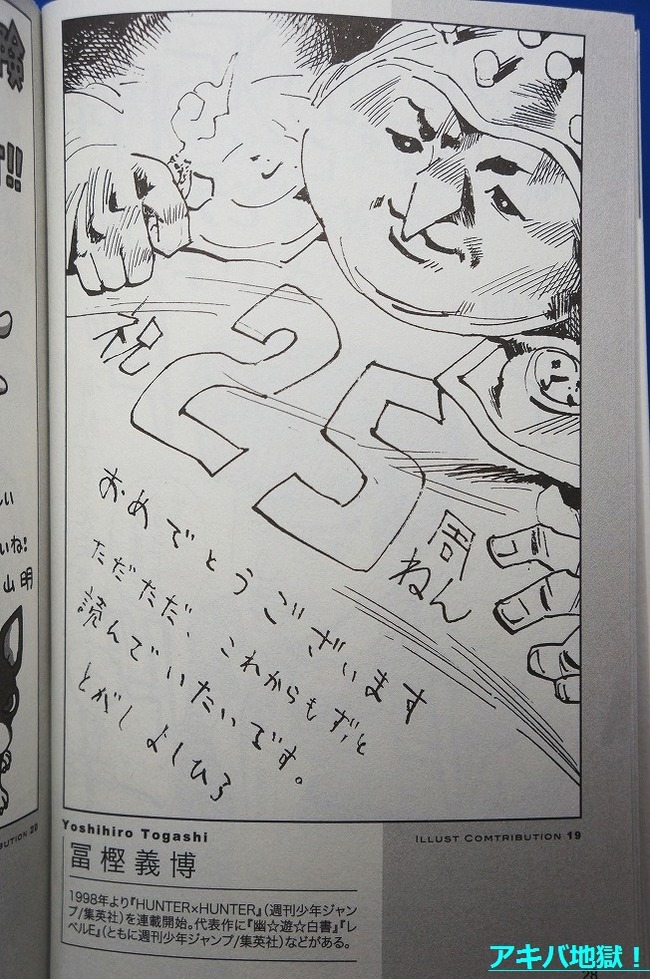 祝
25
周
ねん
おめでとうございます
ただただ、これからもずっと
読んでいたいです。
とがしよしひろ
Yoshihiro Togashi
ILLUST COMTRIBUTION 19
冨樫義博
1998年より『HUNTER×HUNTER』(週刊少年ジャン
プ/集英社)を連載開始。代表作に『幽☆遊☆白書』『レ
ベルE』(ともに週刊少年ジャンプ/集英社)などがある。
!!
いね!
山明
アキバ地獄！